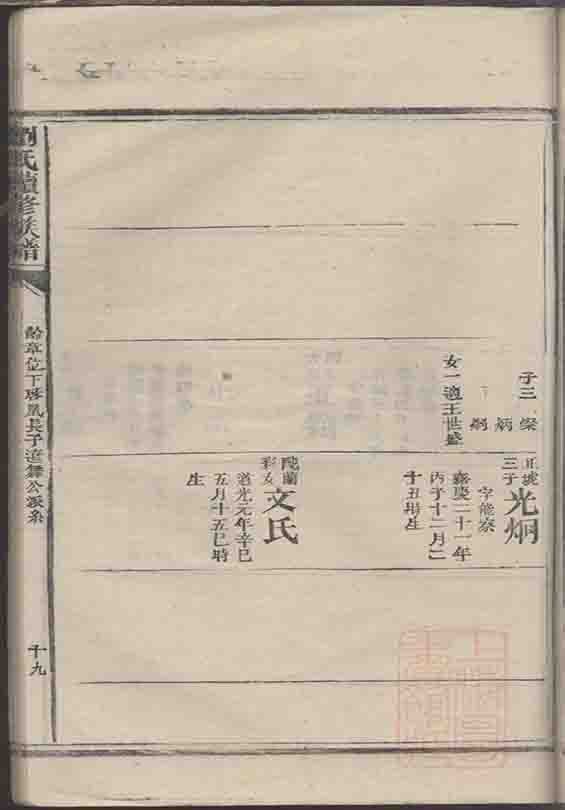 子三 燦
炳
炯
女一適王世盛
三子
光炯
字能寮
嘉慶二十一年
丙子十二月二
十五
生
陡蘭
彩女
文氏
道光元年辛巳
五月十五巳時
生
劉氏續修族譜
齡章位下珍鳳長子達舞公派系
十九